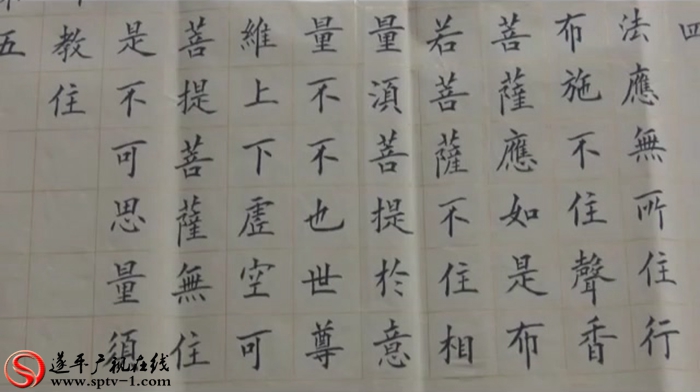 四
法應無所住行
布施不住聲香
菩薩應如是布
若菩薩不住相
量湏菩提於意
量不不也世尊
維上下虛空可
菩提菩薩無住
是不可思量須
教住
五
遂平广视在线
www.sptv-1.com